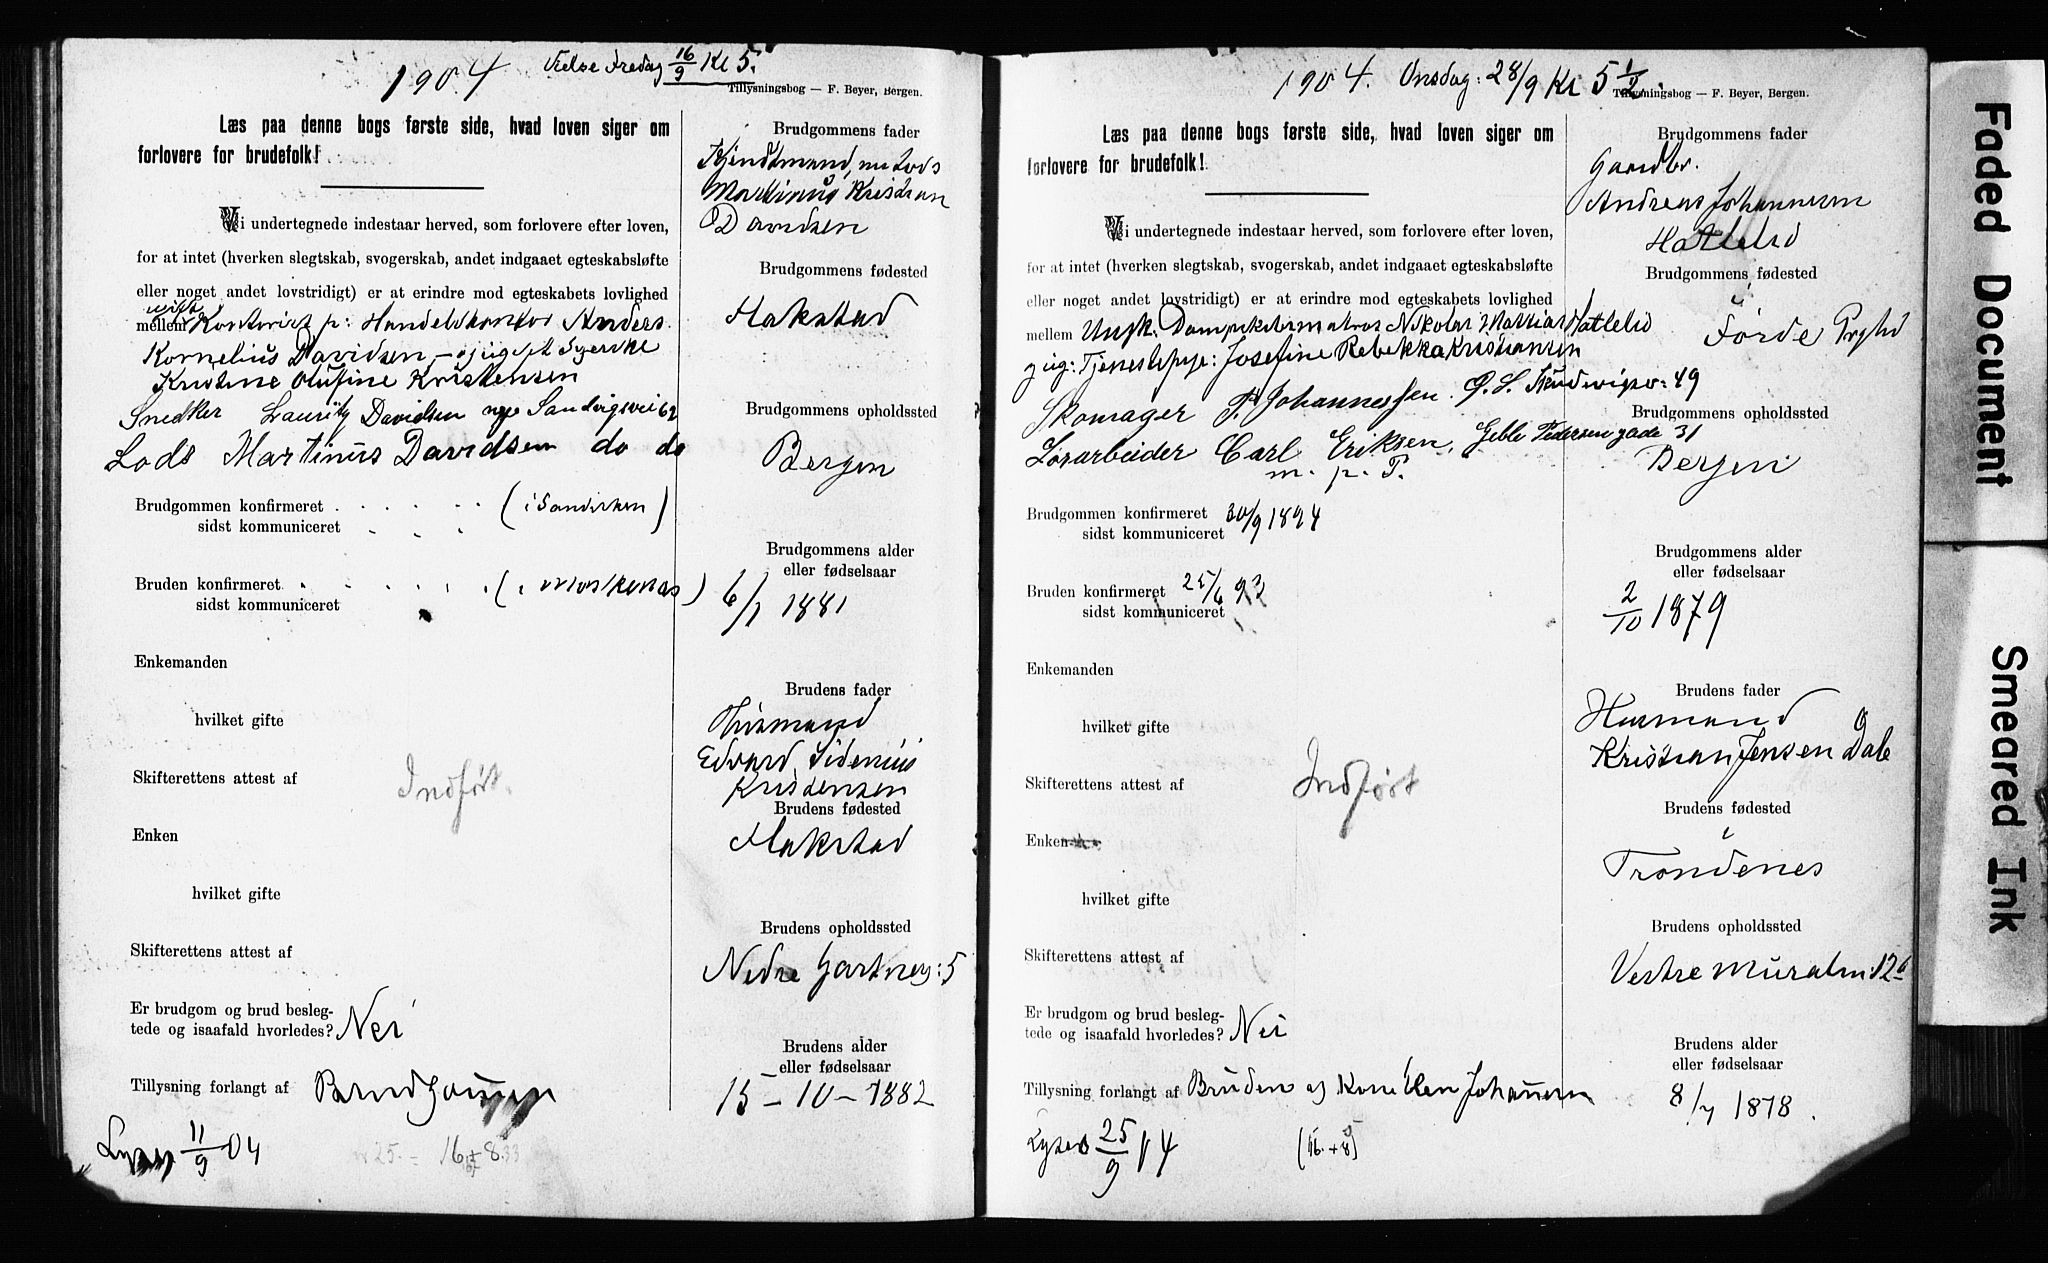 1904 Vielse Fredag 16/9 Kl 5.
Tillysningsbog — F. Beyer, Bergen.
Læs paa denne bogs første side, hvad loven siger om
forlovere for brudefolk!
Vi undertegnede indestaar herved, som forlovere efter loven,
for at intet (hverken slegtskab, svogerskab, andet indgaaet egteskabsløfte
eller noget andet lovstridigt) er at erindre mod egteskabets lovlighed
mellem Kontorist p: Handelskontor Anders
Kornelius Davidsen — og
Kristine Olufine Kristensen
Snedker Lauritz Davidsen nye Sandvigsvei 62
Lods Martinus Davidsen do do
Brudgommen konfirmeret (i Sandviken)
sidst kommuniceret
Bruden konfirmeret (i Moskenæs)
sidst kommuniceret
Enkemanden
hvilket gifte
Skifterettens attest af
Indført.
Enken
hvilket gifte
Skifterettens attest af
Er brudgom og brud besleg-
tede og isaafald hvorledes? Nei
Tillysning forlangt af Brudgommen
Lyses 11/9 04
Brudgommens fader
Kjendtmand, nu Lods
Martinus Kristian
Davidsen
Brudgommens fødested
Hakstad
Brudgommens opholdssted
Bergen
Brudgommens alder
eller fødselsaar
6/1 1881
Brudens fader
Edvard Sidenius
Kristensen
Brudens fødested
Hakstad
Brudens opholdssted
Nedre Gartnerg: 5
Brudens alder
eller fødselsaar
15 – 10 – 1882
1904. Onsdag: 28/9 Kl 5 1/2.
Tillysningsbog — F. Beyer, Bergen.
Læs paa denne bogs første side, hvad loven siger om
forlovere for brudefolk!
Vi undertegnede indestaar herved, som forlovere efter loven,
for at intet (hverken slegtskab, svogerskab, andet indgaaet egteskabsløfte
eller noget andet lovstridigt) er at erindre mod egteskabets lovlighed
mellem Ungk. Dampskibsmatros Nikolai Mattias Hatlelid
og pig: Tjenestepige: Josefine Rebekka Kristiansen
Skomager P. Johannessen. Ø. S. Skudevigsv: 49
Løsarbeider Carl Eriksen, Geble Pedersen gade 31
m. p. P.
Brudgommen konfirmeret 30/9 1894
sidst kommuniceret
Bruden konfirmeret 25/6 93
sidst kommuniceret
Enkemanden
hvilket gifte
Skifterettens attest af
Indført
Enken
hvilket gifte
Skifterettens attest af
Er brudgom og brud besleg-
tede og isaafald hvorledes? Nei
Tillysning forlangt af Bruden og Kone Elen Johannesen
Lyses 25/9 04
[16. + 8]
Brudgommens fader
Gaardbr.
Andreas Johannesen
Hatlelid
Brudgommens fødested
Førde Prgld
Brudgommens opholdssted
Bergen
Brudgommens alder
eller fødselsaar
2/10 1879
Brudens fader
Husmand
Kristian Jensen Dale
Brudens fødested
Trondenes
Brudens opholdssted
Vestre Muralm: 12a
Brudens alder
eller fødselsaar
8/7 1878.
Faded Document
Smeared Ink